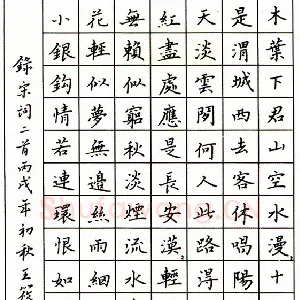 木葉下君山空水漫〻十
是渭城西去客休唱陽
天淡雲閒何人此路淂
紅盡處應是長安漠〻輕
無賴似窮秋淡煙流水
花輕似夢無邊絲雨細
小銀鈎情若連環恨如
錄宋詞二首丙戌年初秋王筱